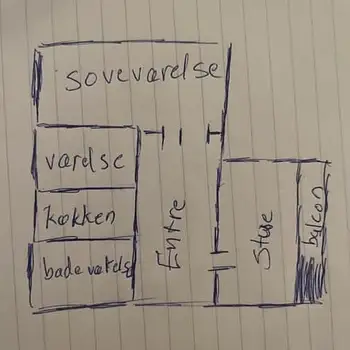 soveværelse
værelse
køkken
badeværelse
Entre
Stue
balcon